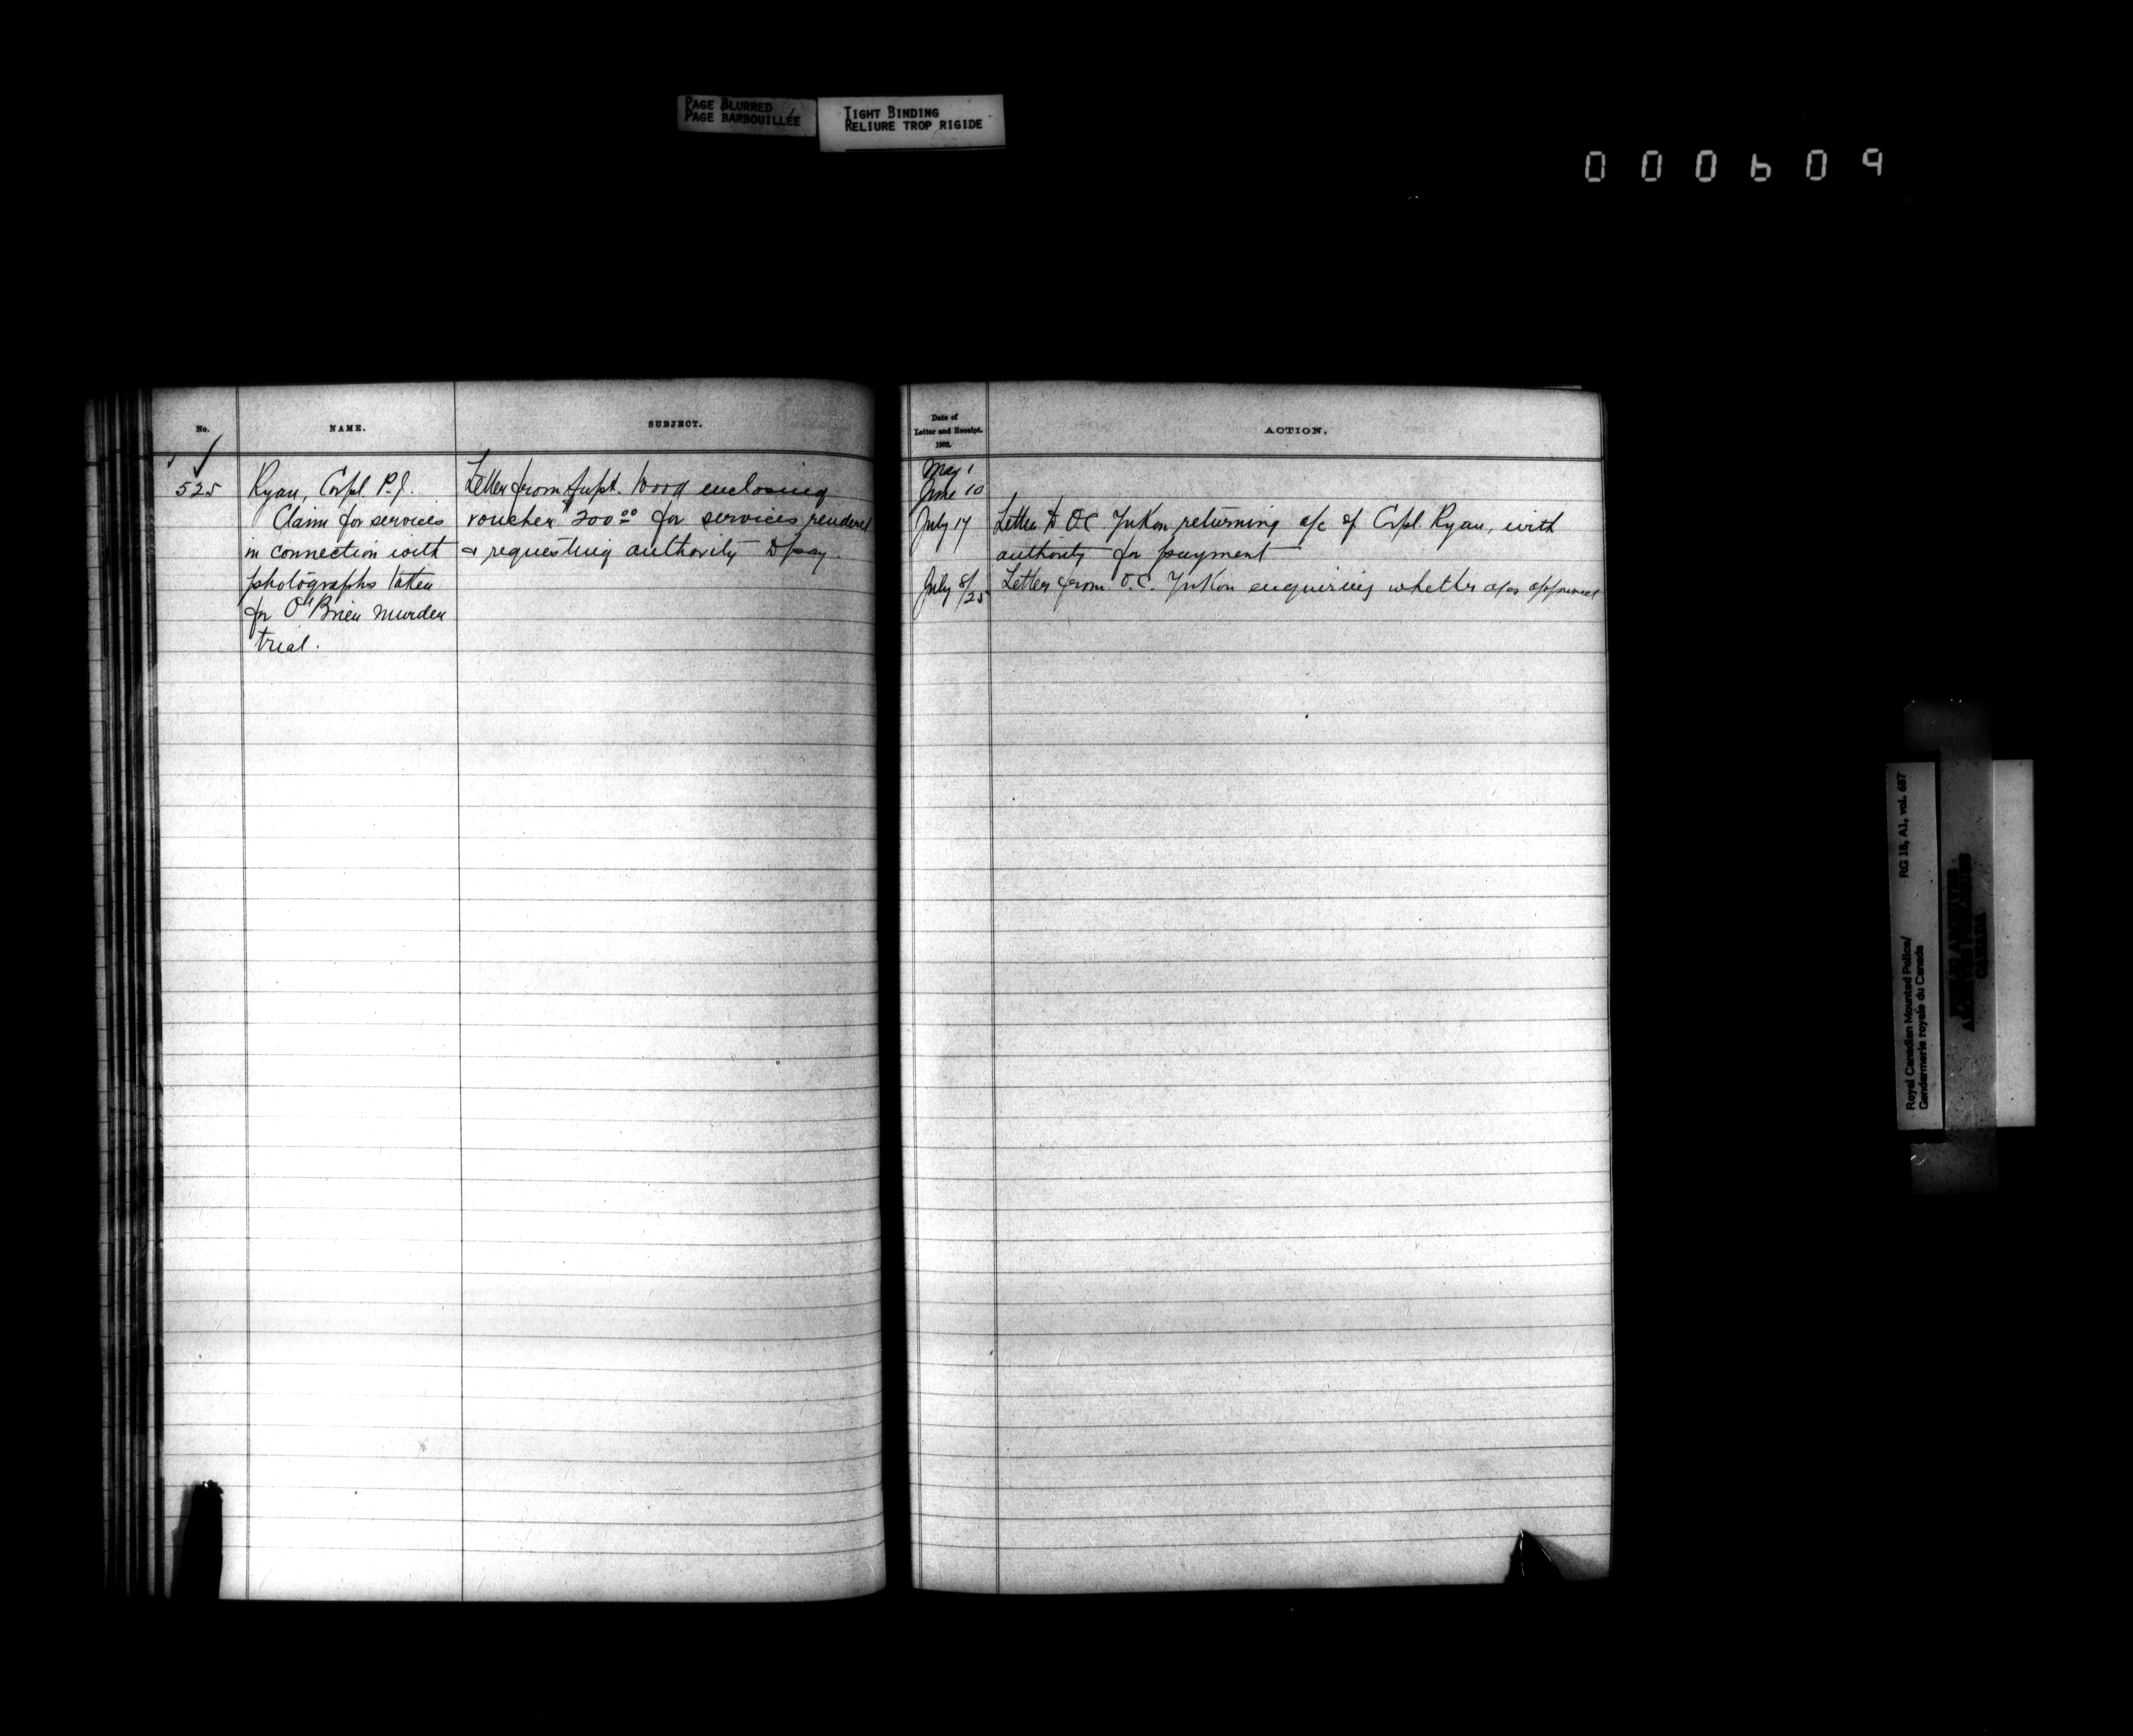 PAGE BLURRED
PAGE BARBOUILLÉE
TIGHT BINDING
RELIURE TROP RIGIDE
000609
No.
NAME.
SUBJECT.
525
Ryan, Corpl. P.J.
Claim for services
in connection with
photographs taken
for O'Brien Murder
trial.
Letter from Supt. Wood enclosing
voucher $200 00 for services rendered
& requesting authority to pay.
Date of
Letter and Receipt.
1902.
ACTION.
May 1
June 10
July 17
Letter to O.C. Yukon returning a/c of Corpl. Ryan, with
authority for payment
July 8/25
Letter from O.C. Yukon enquiring whether a/cs approved
Royal Canadian Mounted Police/
Gendarmerie royale du Canada
RG 18, A1, vol. 687
PUBLIC ARCHIVES
ARCHIVES PUBLIQUES
CANADA